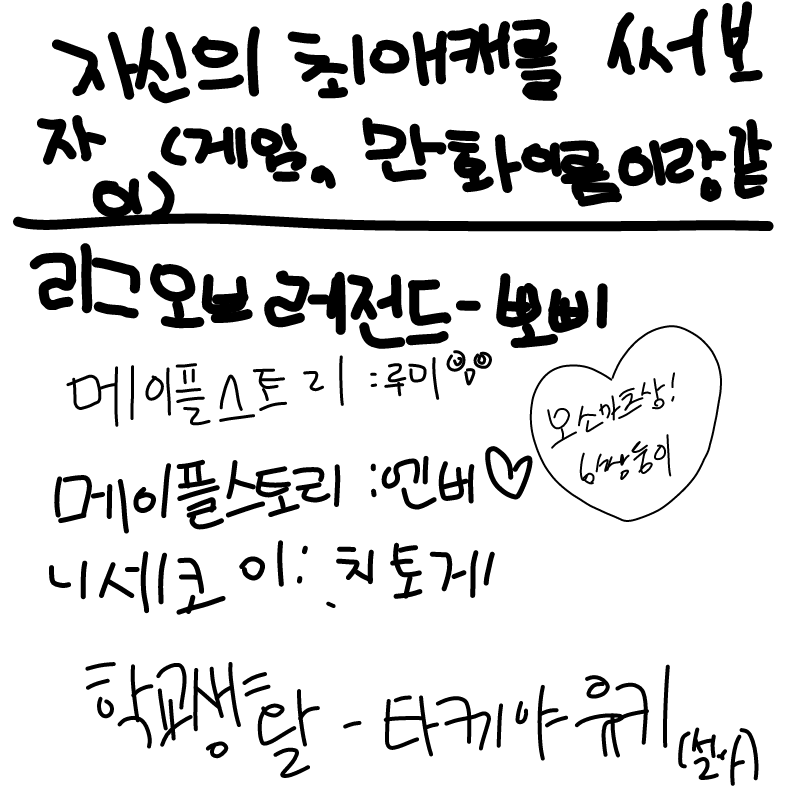 자신의 최애캐를 써보
자 (게임, 만화이름이랑같
이)
리그오브레전드-뽀삐
메이플스토리:루미
오소마츠상!
6쌍둥이
메이플스토리:엔버♡
니세코이:치토게
학교생활-타케야유키